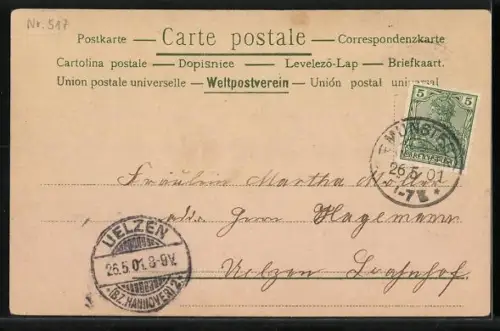 Nr. 517
Postkarte — Carte postale — Correspondenzkarte
Cartolina postale — Dopisnice — Levelező-Lap — Briefkaart.
Union postale universelle — Weltpostverein — Unión postal universal
5 5
REICHSPOST
MUNSTER
26.5.01
7-8
Fräulein Martha
adr. Herrn Hagemann
Uelzen Bahnhof.
UELZEN
26.5.01 8-9V.
(BZ. HANNOVER)